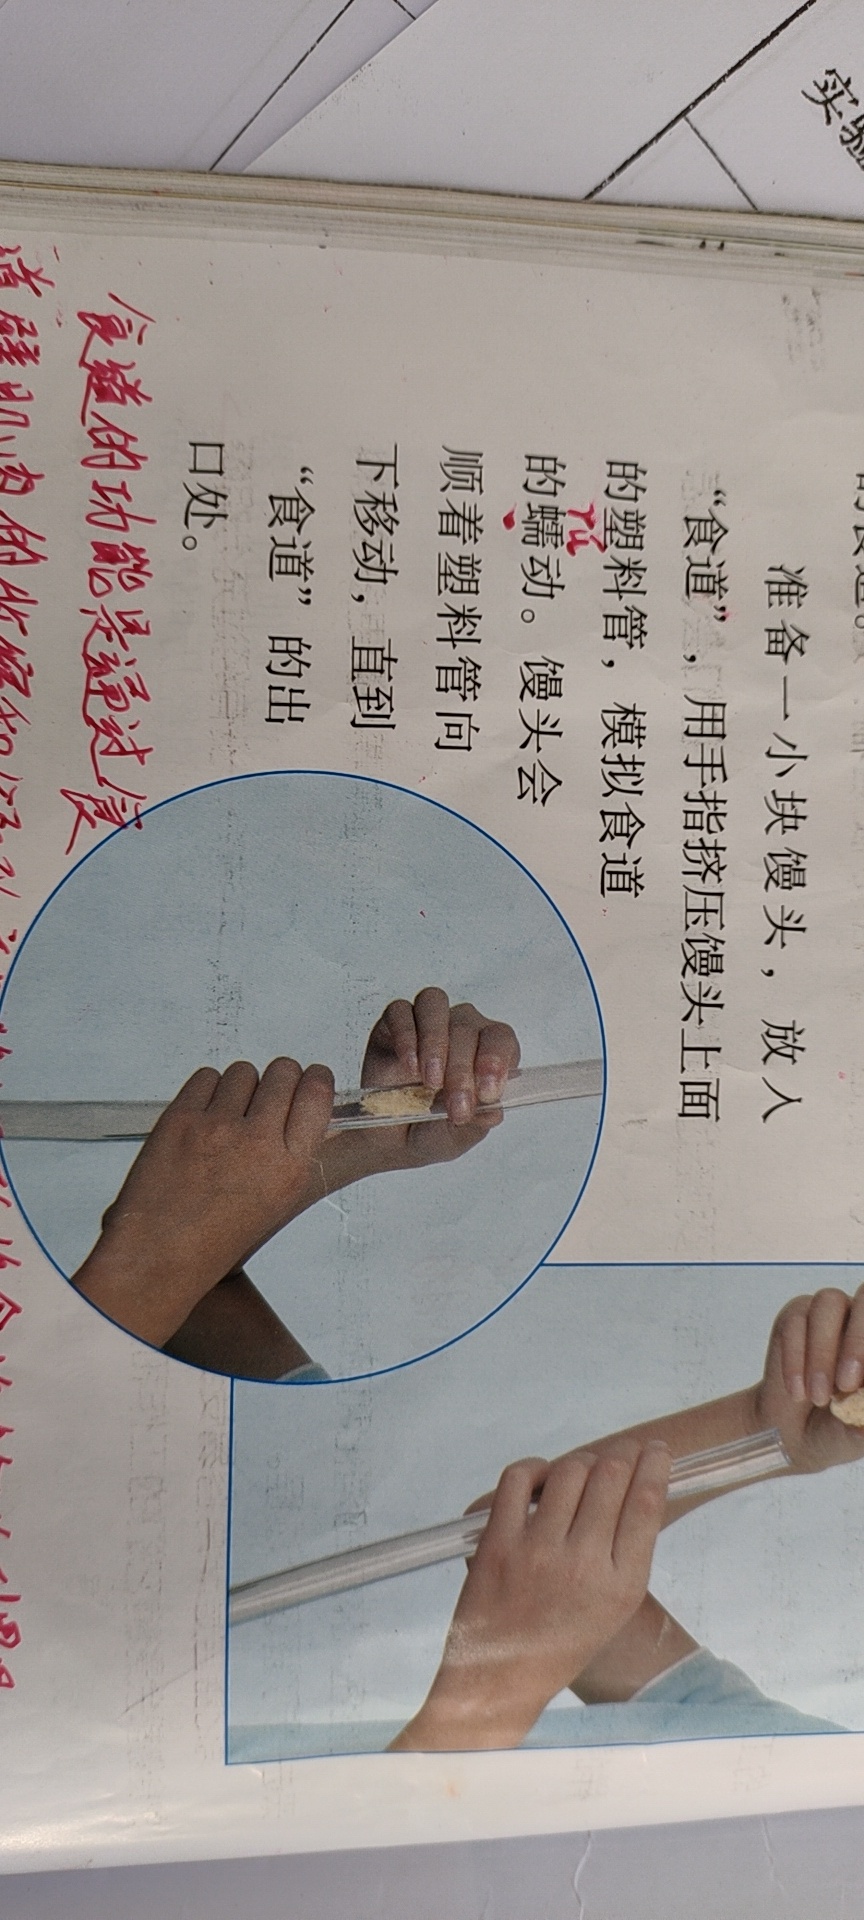 实验
准备一小块馒头，放入
“食道”，用手指挤压馒头上面
的塑料管，模拟食道
的蠕动。馒头会
顺着塑料管向
下移动，直到
“食道”的出
口处。
rú
食道的功能是通过食
道壁肌肉的收缩和